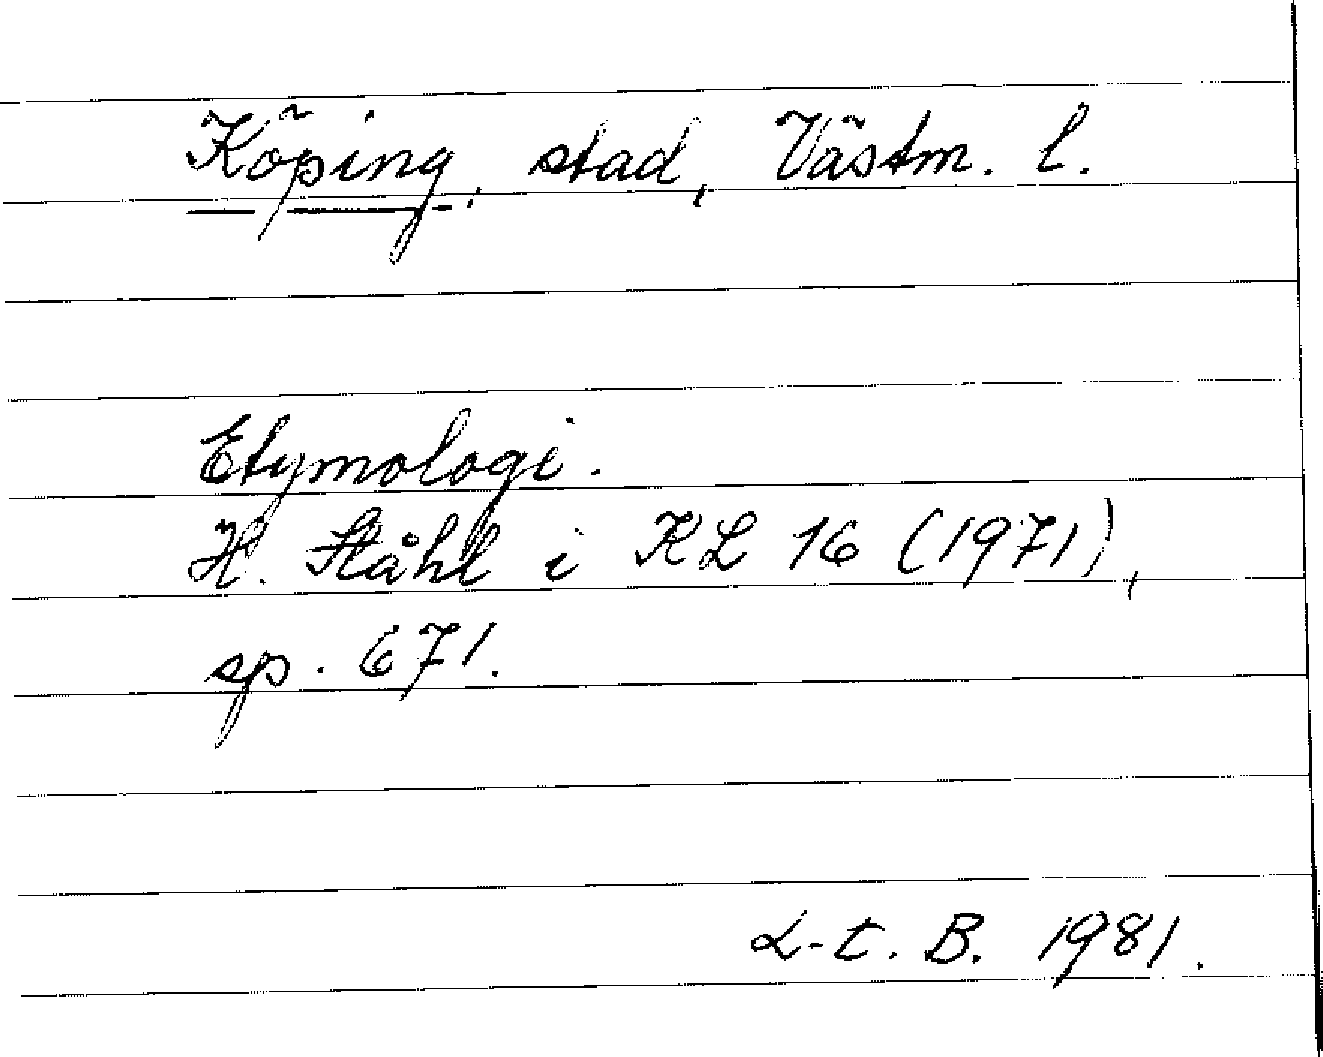 Köping, stad, Västm. l.
Etymologi.
H. Ståhl i KL 16 (1971),
sp. 671.
L-t. B. 1981.